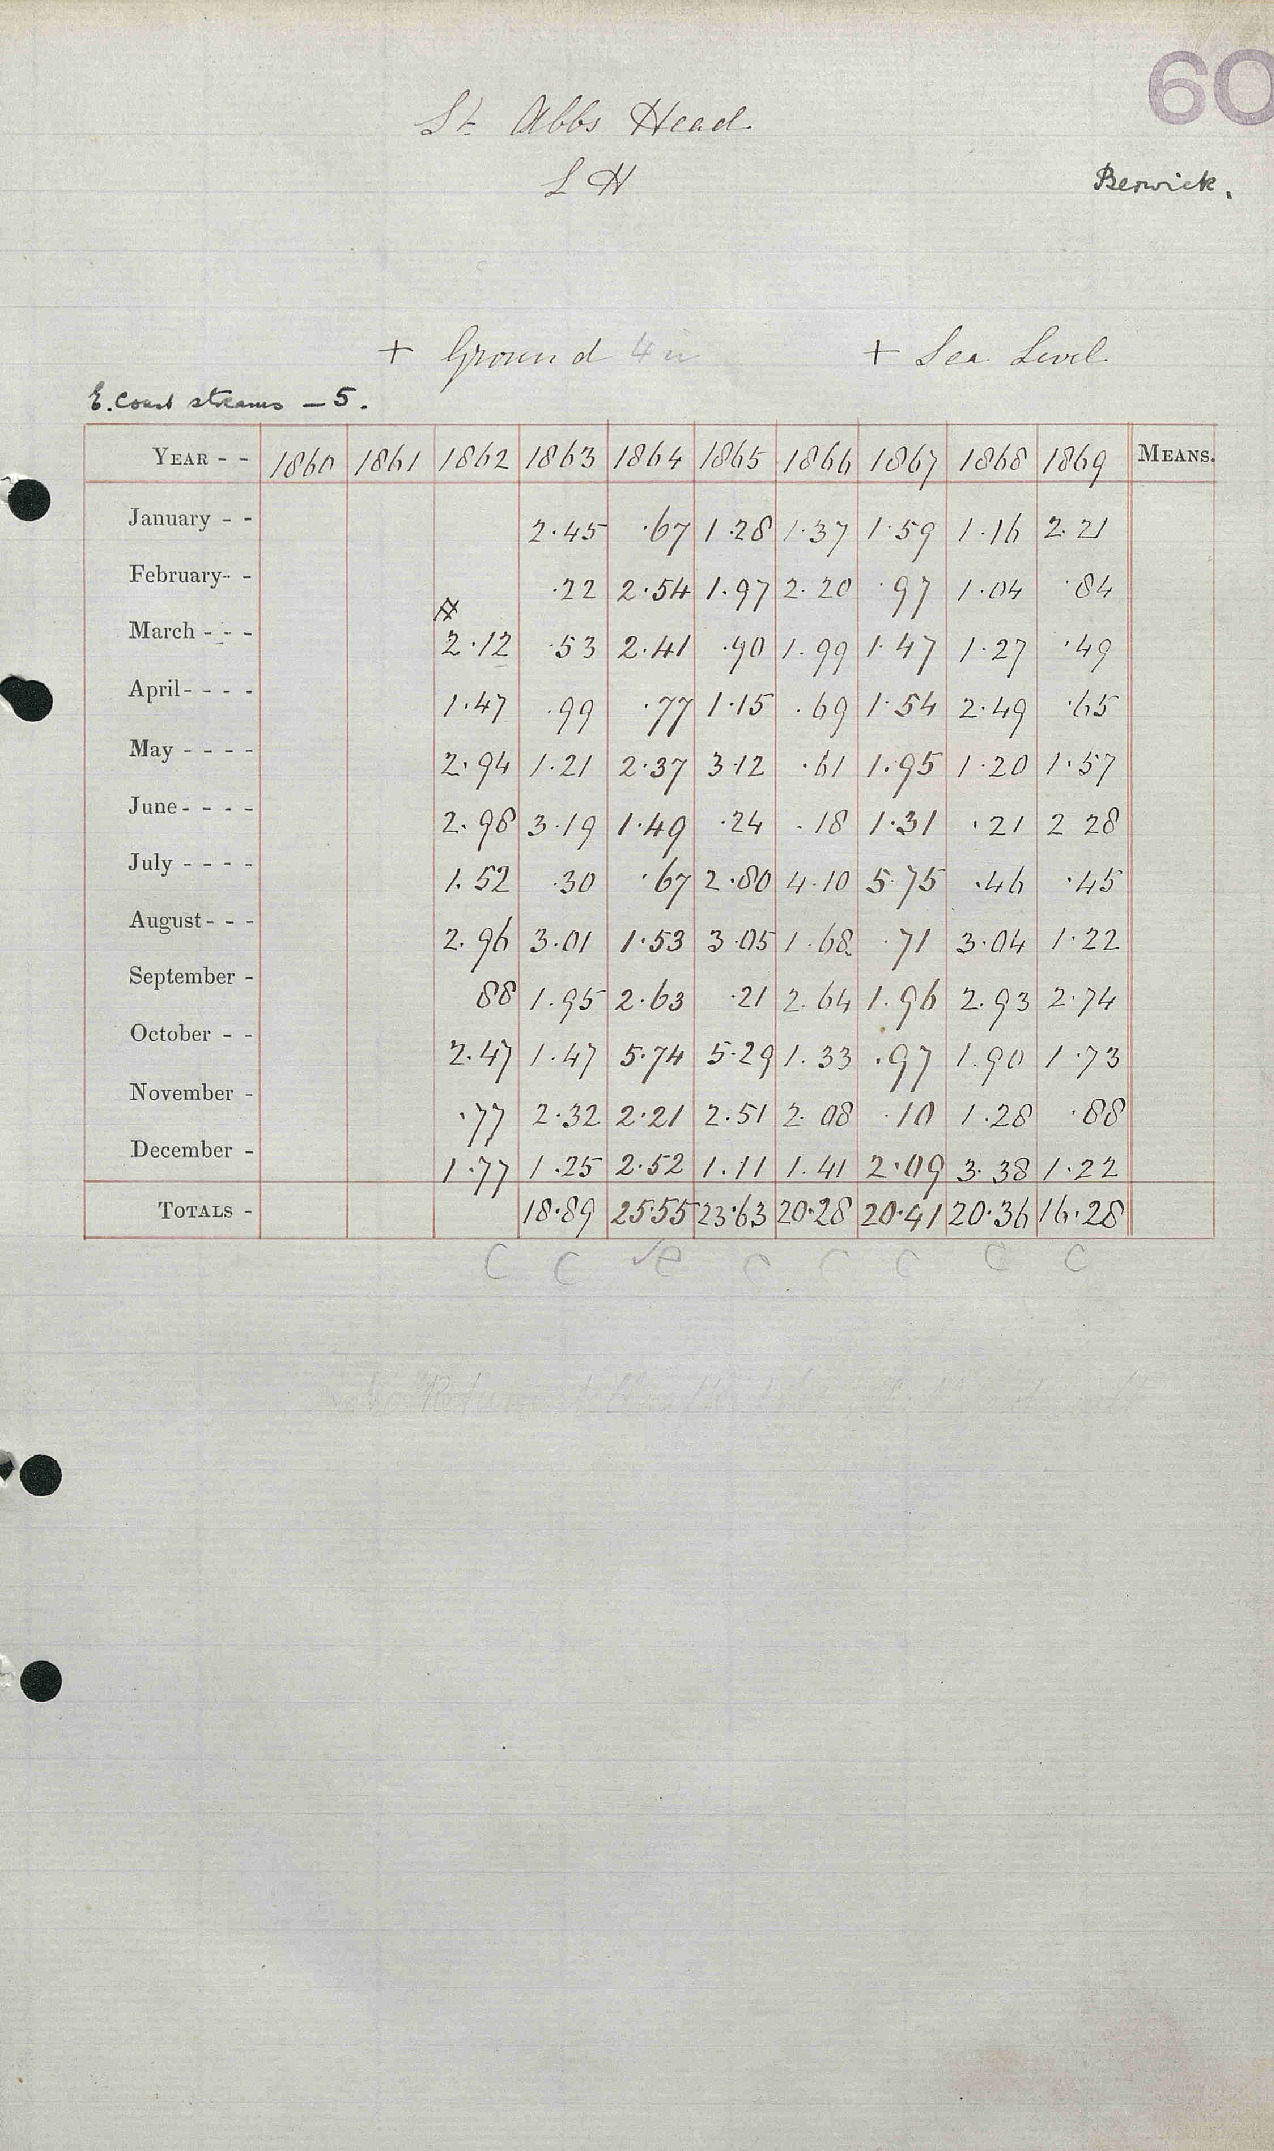 60
St Abbs Head
L H
Berwick.
+ Ground 4 in + Sea Level
E. Coast streams — 5.
YEAR - - 1860 1861 1862 1863 1864 1865 1866 1867 1868 1869 MEANS.
January - - 2.45 .67 1.28 1.37 1.59 1.16 2.21
February - - .22 2.54 1.97 2.20 .97 1.04 .84
March - - - 2.12 .53 2.41 .90 1.99 1.47 1.27 .49
April - - - - 1.47 .99 .77 1.15 .69 1.54 2.49 .65
May - - - - 2.94 1.21 2.37 3.12 .61 1.95 1.20 1.57
June - - - - 2.98 3.19 1.49 .24 .18 1.31 .21 2 28
July - - - - 1.52 .30 .67 2.80 4.10 5.75 .46 .45
August - - - 2.96 3.01 1.53 3.05 1.68 .71 3.04 1.22
September - 88 1.95 2.63 .21 2.64 1.96 2.93 2.74
October - - 2.47 1.47 5.74 5.29 1.33 .97 1.90 1.73
November - .77 2.32 2.21 2.51 2.08 .10 1.28 .88
December - 1.77 1.25 2.52 1.11 1.41 2.09 3.38 1.22
TOTALS - 18.89 25.55 23.63 20.28 20.41 20.36 16.28
C C ✓C C C C C C